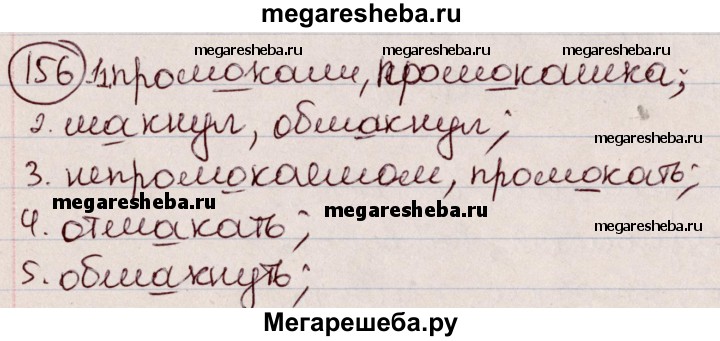 megaresheba.ru
megaresheba.ru megaresheba.ru
156 1. промокали, промокашка;
megaresheba.ru
2. макнул, обмакнул;
3. непромокаемом, промокать;
megaresheba.ru megaresheba.ru megaresheba.ru
4. отмакать;
5. обмакнуть;
Мегарешеба.ру